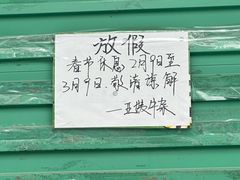 放假
春节休息2月9日至
3月9日.敬请谅解
—豆芪牛杂